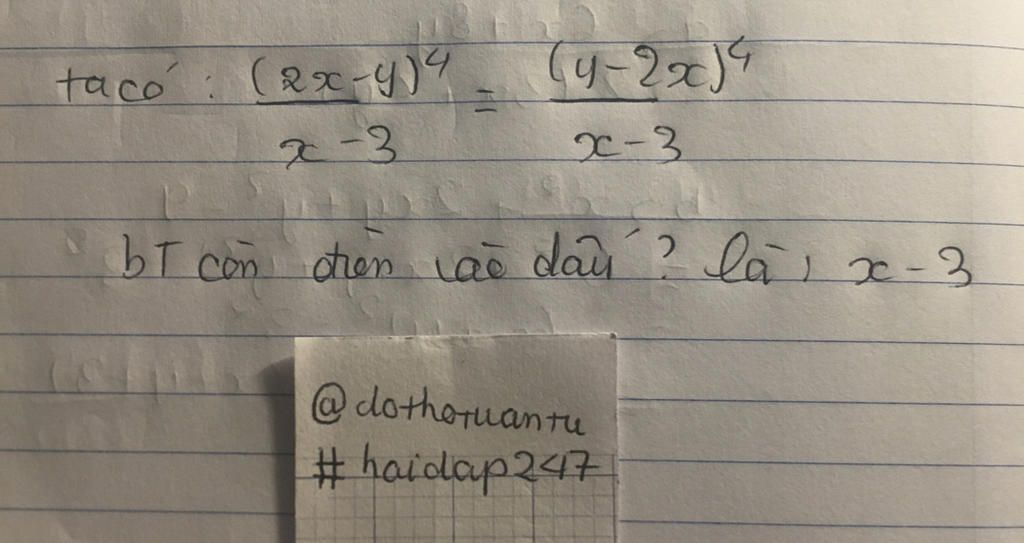 ta có: (2x-y)⁴/x-3 = (y-2x)⁴/x-3
bT còn điền vào dấu? là, x-3
@dothotuantu
#haidap247